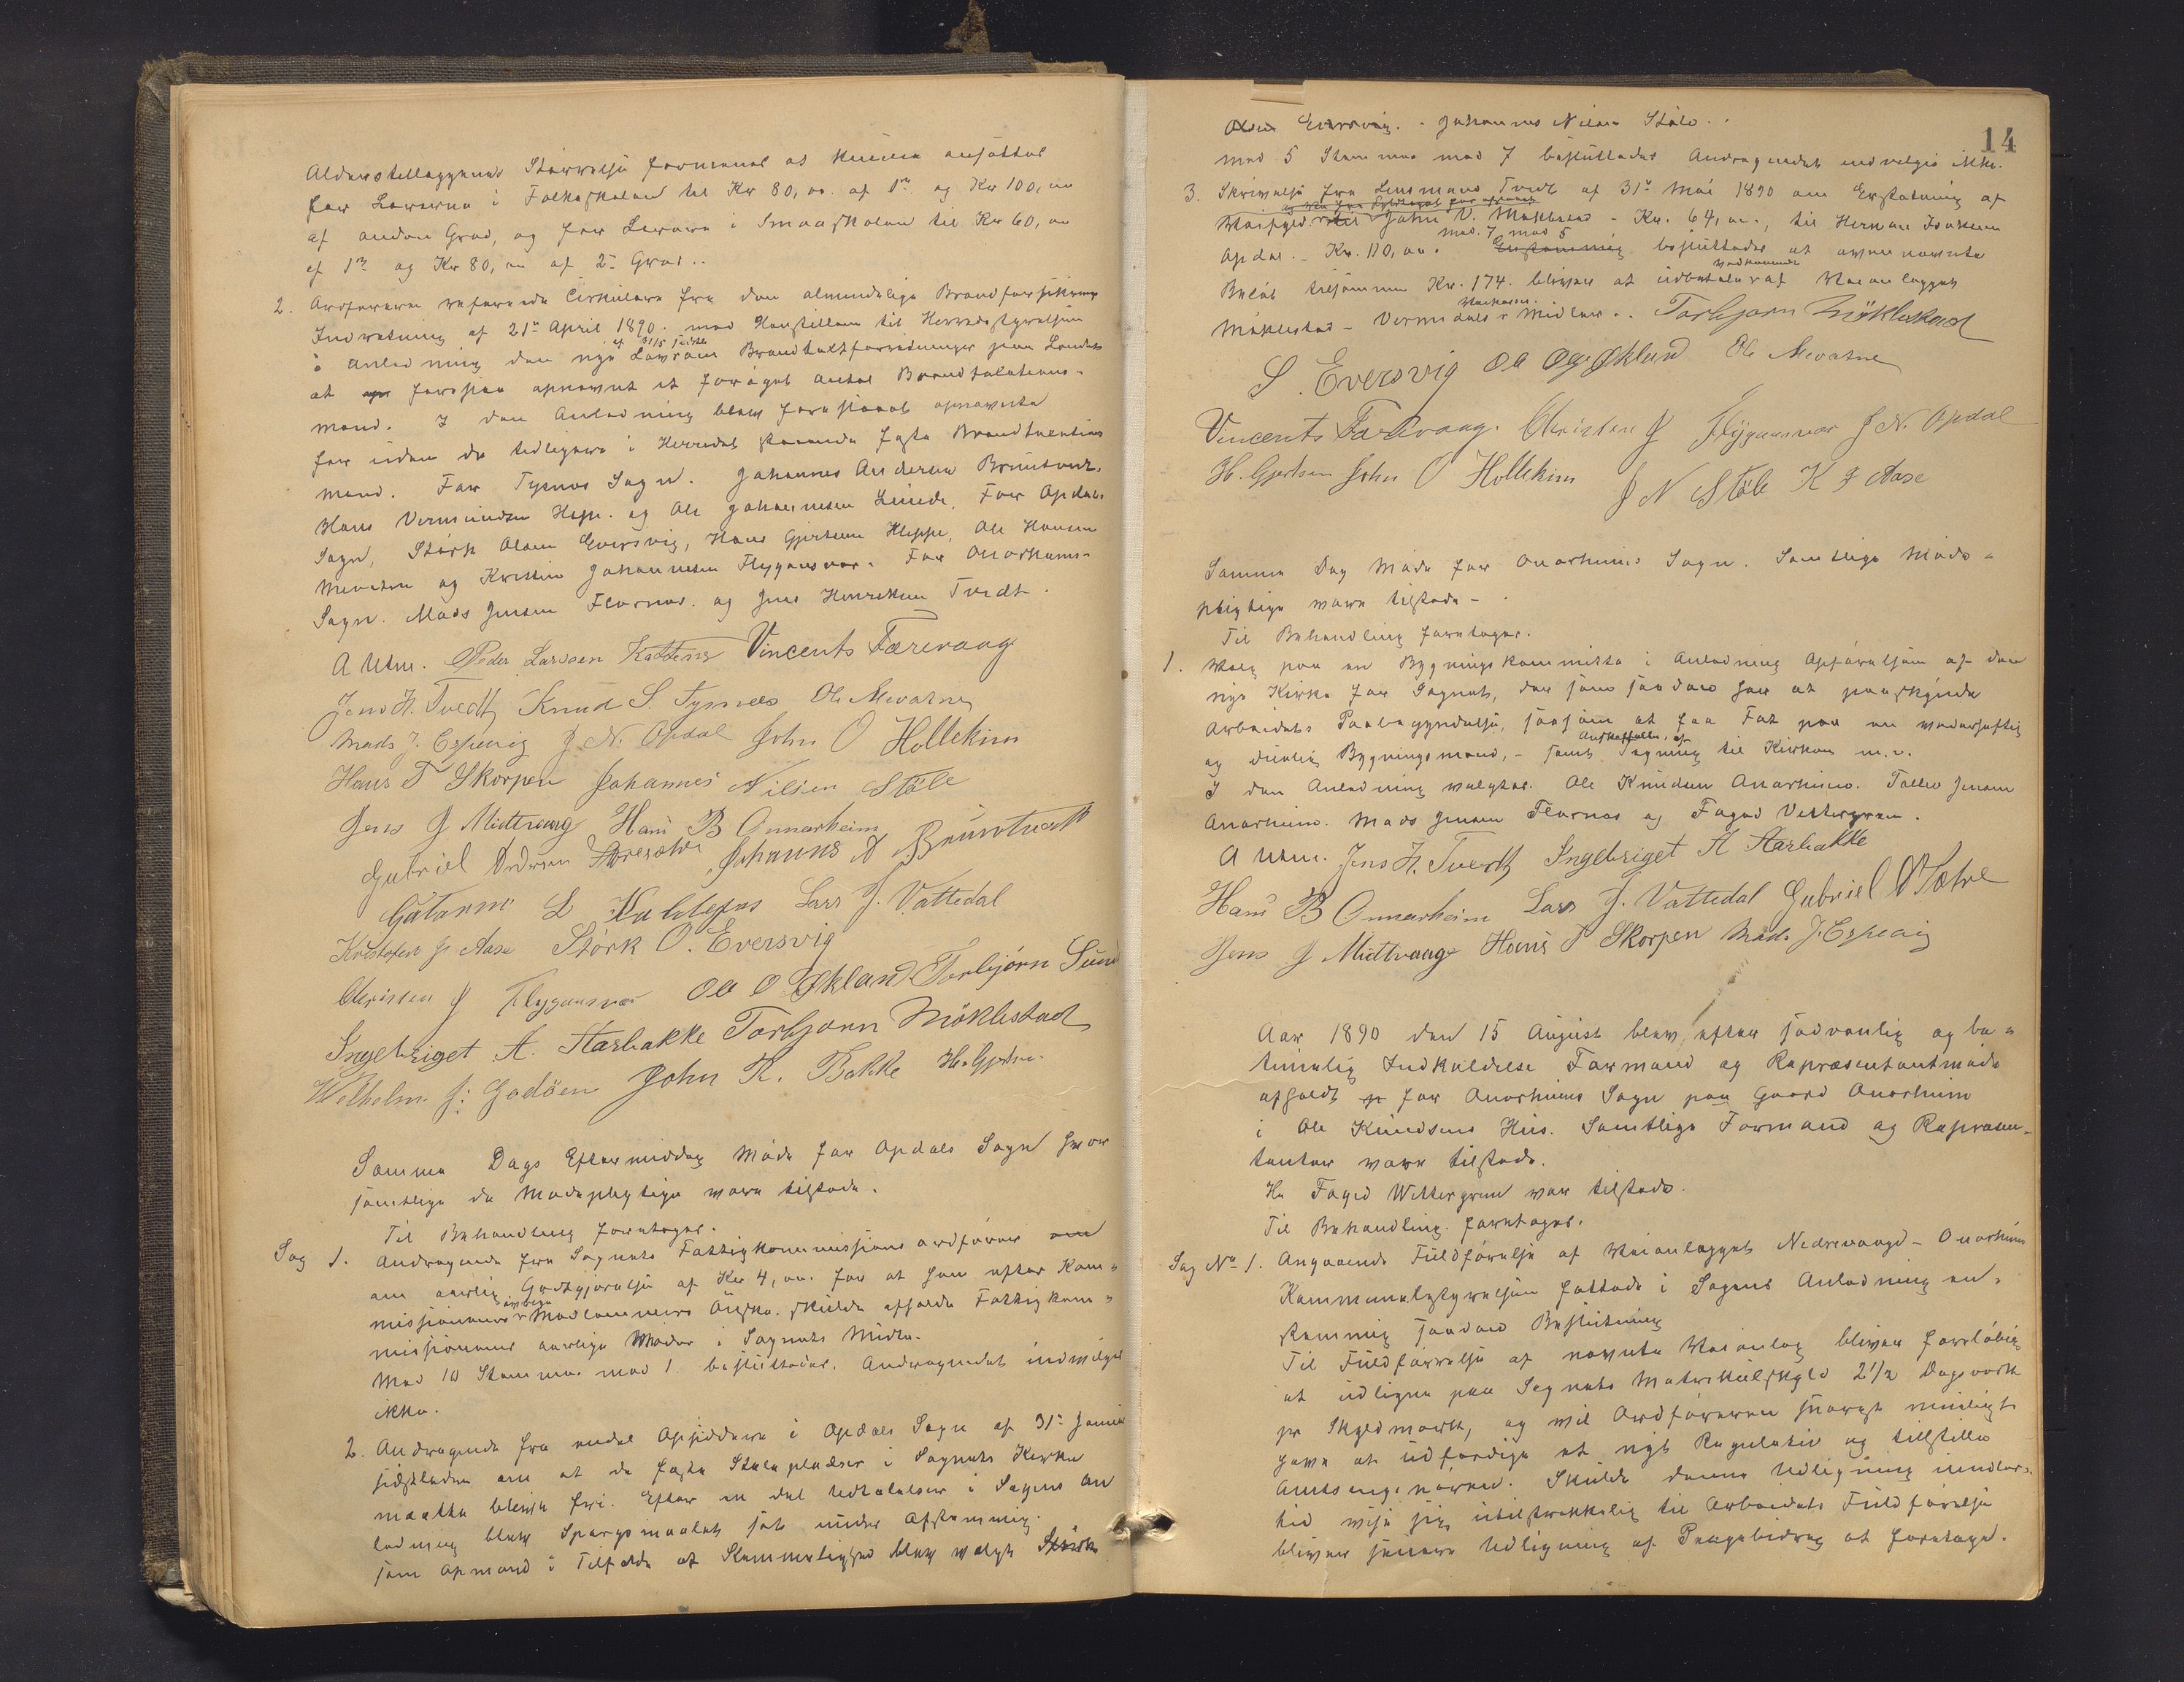 Alderstillæggenes Størrelse formenes at kunne ansættes
for Lærerne i Folkeskolen til Kr 80,00 af 1ste og Kr 100,00
af anden Grad, og for Lærere i Smaaskolen til Kr 60,00
af 1ste og Kr 80,00 af 2den Grad..
2. Ordføreren refererede Cirkulære fra den almindelige Brandforsikrings
Indretning af 21de April 1890. med Henstillen til Herredsstyrelsen
i Anledning den nye Lov om Brandtaxtforretninger paa Landet
at forslaa opnævnt et forøget Antal Brandtaxtations-
mænd. I den Anledning blev foreslaaet opnævnte
for uden de tidligere i Herredet staaende faste Brandtaxations
mænd. For Tysnes Sogn. Johannes Andersen Bruntvedt.
Hans Vermundsen Heje. og Ole Johannesen Lunde. For Opdals
Sogn, Størk Olsen Eversvig, Hans Gjertsen Kleppe, Ole Hansen
Mevatne og Kristen Johannesen Flygansvær. For Onarheims-
Sogn. Mads Jensen Flornes. og Jens Henriksen Tvedt.
A Uthne. Peder Larssen Vincents Færevaag
Jens H. Tvedt Knud S. Tysnæs Ole Mevatne
Mads J. Espevig J. N. Opdal John O Hollekim
Hans T Skorpen Johannes Nilsen Støle
Jens J Midtvaag Hans B Onnarheim
Gabriel Johannes A Bruntvedt
L Lars J. Vattedal
Kristofer J Aase Størk O. Eversvig
Christen J Flygansvær Ole O Økland Torbjørn Sund
Ingebriget A. Aarbakke Torbjørn Møklestad
Wilhelm J. Godøen John K. Bakke H. Gjertsen
Samme Dags Eftermiddag Møde for Opdals Sogn hvor
samtlige de Mødepligtige vare tilstede.
Til Behandling foretoges.
Sag 1. Andragende fra Sognets Fattigkommissions ordfører om
om aarlig Godtgjørelse af Kr 4,00. for at han efter Kom-
missionens øvrige Medlemmers Ønske. skulde afholde Fattigkom-
missionens aarlige Møder i Sognets Midte.
Med 10 Stemmer mod 1 besluttedes. Andragendet indvilges
ikke.
2. Andragende fra endel Opsiddere i Opdals Sogn af 31te Januar
sidstleden om at de faste Stolepladser i Sognets Kirke
maatte blive fri. Efter en del Udtalelser i Sagens An
ledning blev Spørgsmaalet sat under Afstemning.
som Opmand i Tilfælde af Stemmelighed blev valgt Størk
14
Olsen Eversvig. - Johannes Nilsen Støle..
med 5 Stemmer mod 7 besluttedes Andragendet indvilges ikke.
3. Skrivelse fra Lensmand Tvedt af 31te Mai 1890 om Erstatning af
Veifyld til John V. Møklestad - Kr. 64,00, til Herman Isaksen
Opdal. - Kr. 110,00. Enstemmig med 7 mod 5 besluttedes at ovennævnte
Beløb tilsammen Kr. 174. bliver at udbetale af vedkommende Veianlæggets
Møklestad - Vermedals Veikasses Midler.. Torbjørn Møklestad
S. Eversvig Ole O Økland Ole Mevatne
Vincents Færevaag. Christen J Flygansvær J N. Opdal
H. Gjertsen John O Hollekim J N Støle K J Aase
Samme Dag Møde for Onarheims Sogn. Samtlige Møde-
pligtige vare tilstede -
Til Behandling foretoges.
1. Valg paa en Bygningskommitte i Anledning Opførelsen af den
nye Kirke for Sognet, der som saadan har at paaskynde
Arbeidets Paabegyndelse, saasom at faa Fat paa en vederhæftig
og duelig Bygningsmand, - samt Anskaffelse af Tegning til Kirken m.v.
I den Anledning valgtes. Ole Knudsen Onarheim. Tollev Jensen
Onarheim. Mads Jensen Flornes og Foged Vettergren.
A Uthne. Jens H. Tvedt Ingebriget A Aarbakke
Hans B Onnarheim Lars J. Vattedal Gabriel
Jens J Midtvaage Hans T Skorpen Mads J. Espevig
Aar 1890 den 15 August blev efter sædvanlig og be-
timelig Indkaldelse Formand og Repræsentantmøde
afholdt for Onarheims Sogn paa Gaard Onarheim
i Ole Knudsens Hus. Samtlige Formænd og Repræsen-
tanter vare tilstede.
Hr Foged Wettergren var tilstede.
Til Behandling foretoges.
Sag No 1. Angaaende Fuldførelse af Veianlægget Nedrevaage - Onarheim
Kommunestyrelsen fattede i Sagens Anledning en-
stemmig saadan Beslutning
Til Fuldførelse af nævnte Veianlæg bliver foreløbig
at udligne paa Sognets Matrikulskyld 2 1/2 Dagsværk
pr Skyldmark, og vil Ordføreren snarest muligst
have at udfærdige et nyt Regulativ og tilstille
Amtsingeniøren. Skulde denne Udligning imidler-
tid vise sig utilstrækkelig til Arbeidets Fuldførelse
bliver senere Udligning af Pengebidrag at foretage.